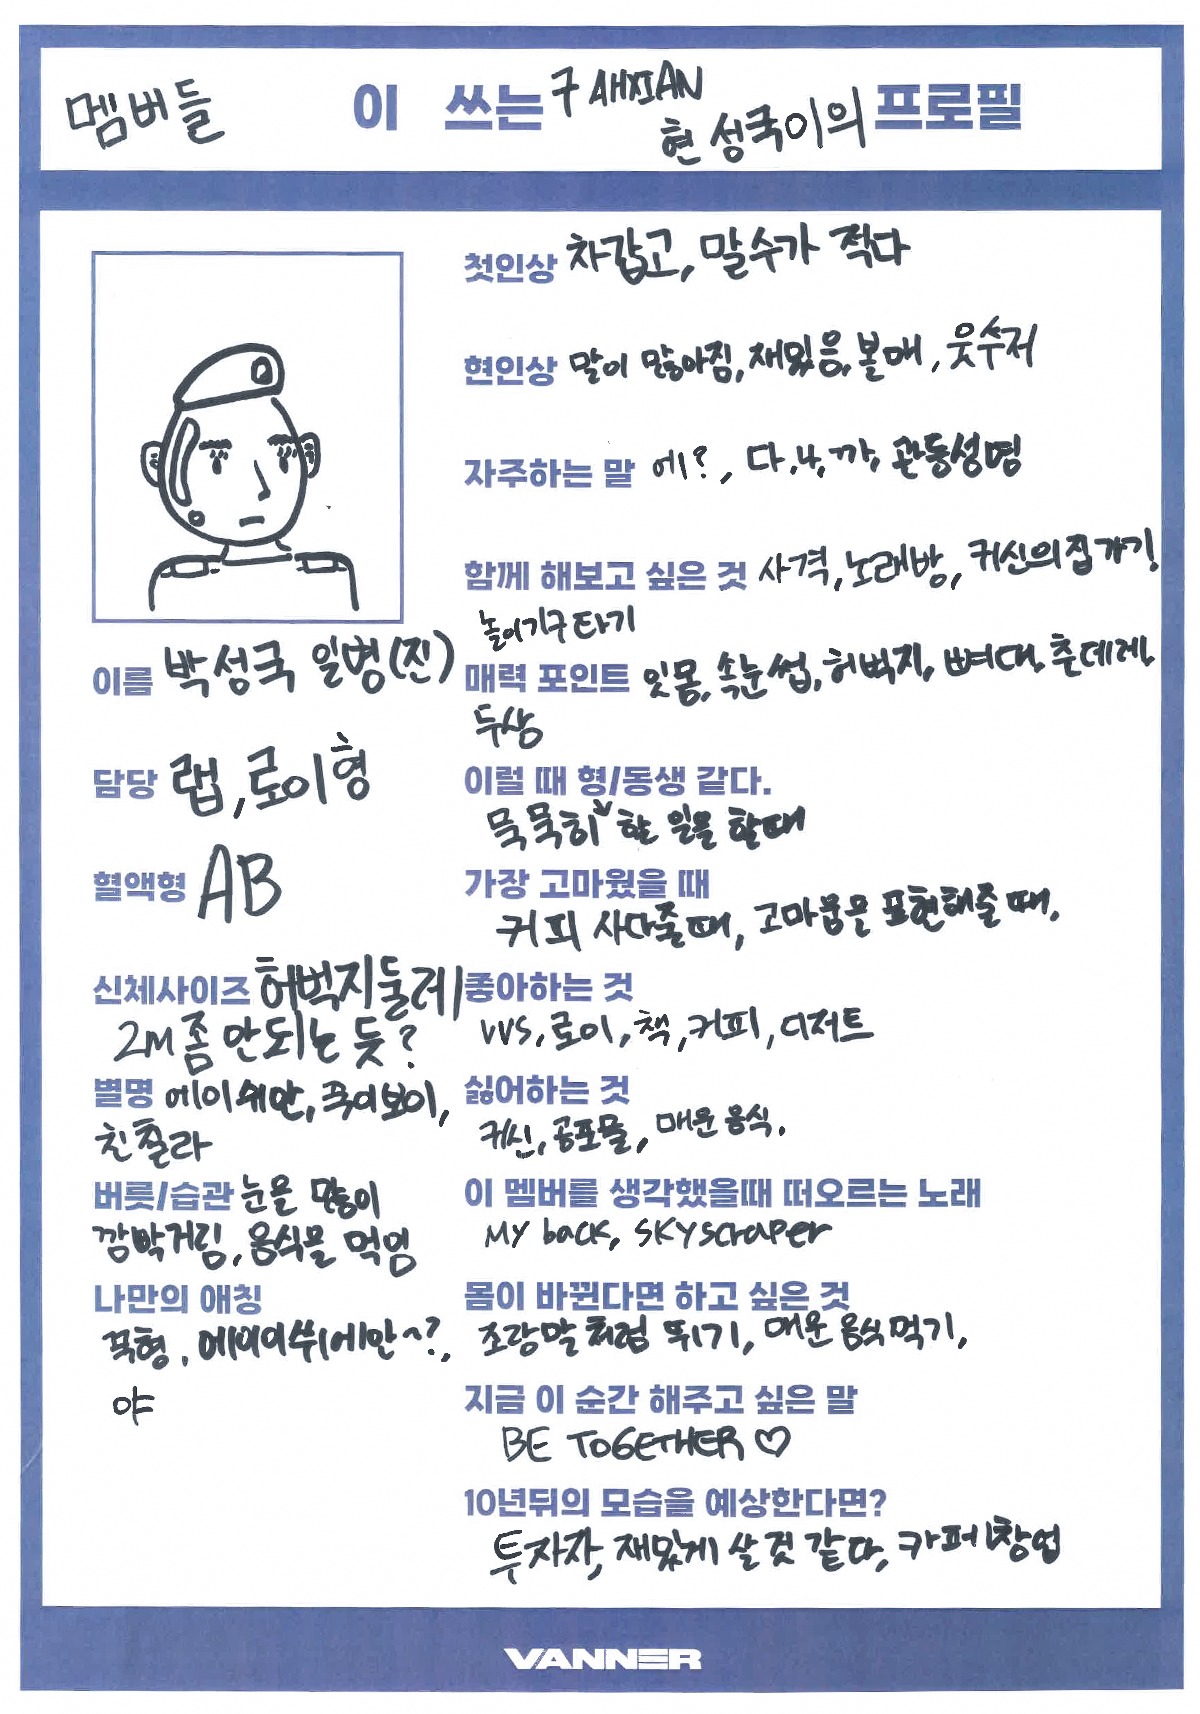 멤버들 이 쓰는 구 AHXIAN
현 성국이의 프로필
첫인상 차갑고, 말수가 적다
현인상 말이 많아짐, 재밌음, 볼매, 웃수저
자주하는 말 에?, 다,나,까, 관등성명
함께 해보고 싶은 것 사격, 노래방, 귀신의집 가기!
놀이기구 타기
이름 박성국 일병(진)
매력 포인트 잇몸, 속눈썹, 허벅지, 뼈대, 츤데레,
두상
담당 랩, 로이형
이럴 때 형/동생 같다.
묵묵히 할 일을 할때
혈액형 AB
가장 고마웠을 때
커피 사다줄때, 고마움을 표현해줄 때,
신체사이즈 허벅지둘레
2M 좀 안되는 듯?
좋아하는 것
VVS, 로이, 책, 커피, 디저트
별명 에이쉬안, 국이보이,
친칠라
싫어하는 것
귀신, 공포물, 매운 음식.
버릇/습관 눈을 많이
깜빡거림, 음식물 먹임
이 멤버를 생각했을때 떠오르는 노래
My back, SKYscraper
나만의 애칭
꾹형, 에이이쉬에안~?,
야
몸이 바뀐다면 하고 싶은 것
조랑말처럼 뛰기, 매운 음식 먹기,
지금 이 순간 해주고 싶은 말
BE TOGETHER ♡
10년뒤의 모습을 예상한다면?
투자자, 재밌게 살 것 같다, 카페 창업
VANNER